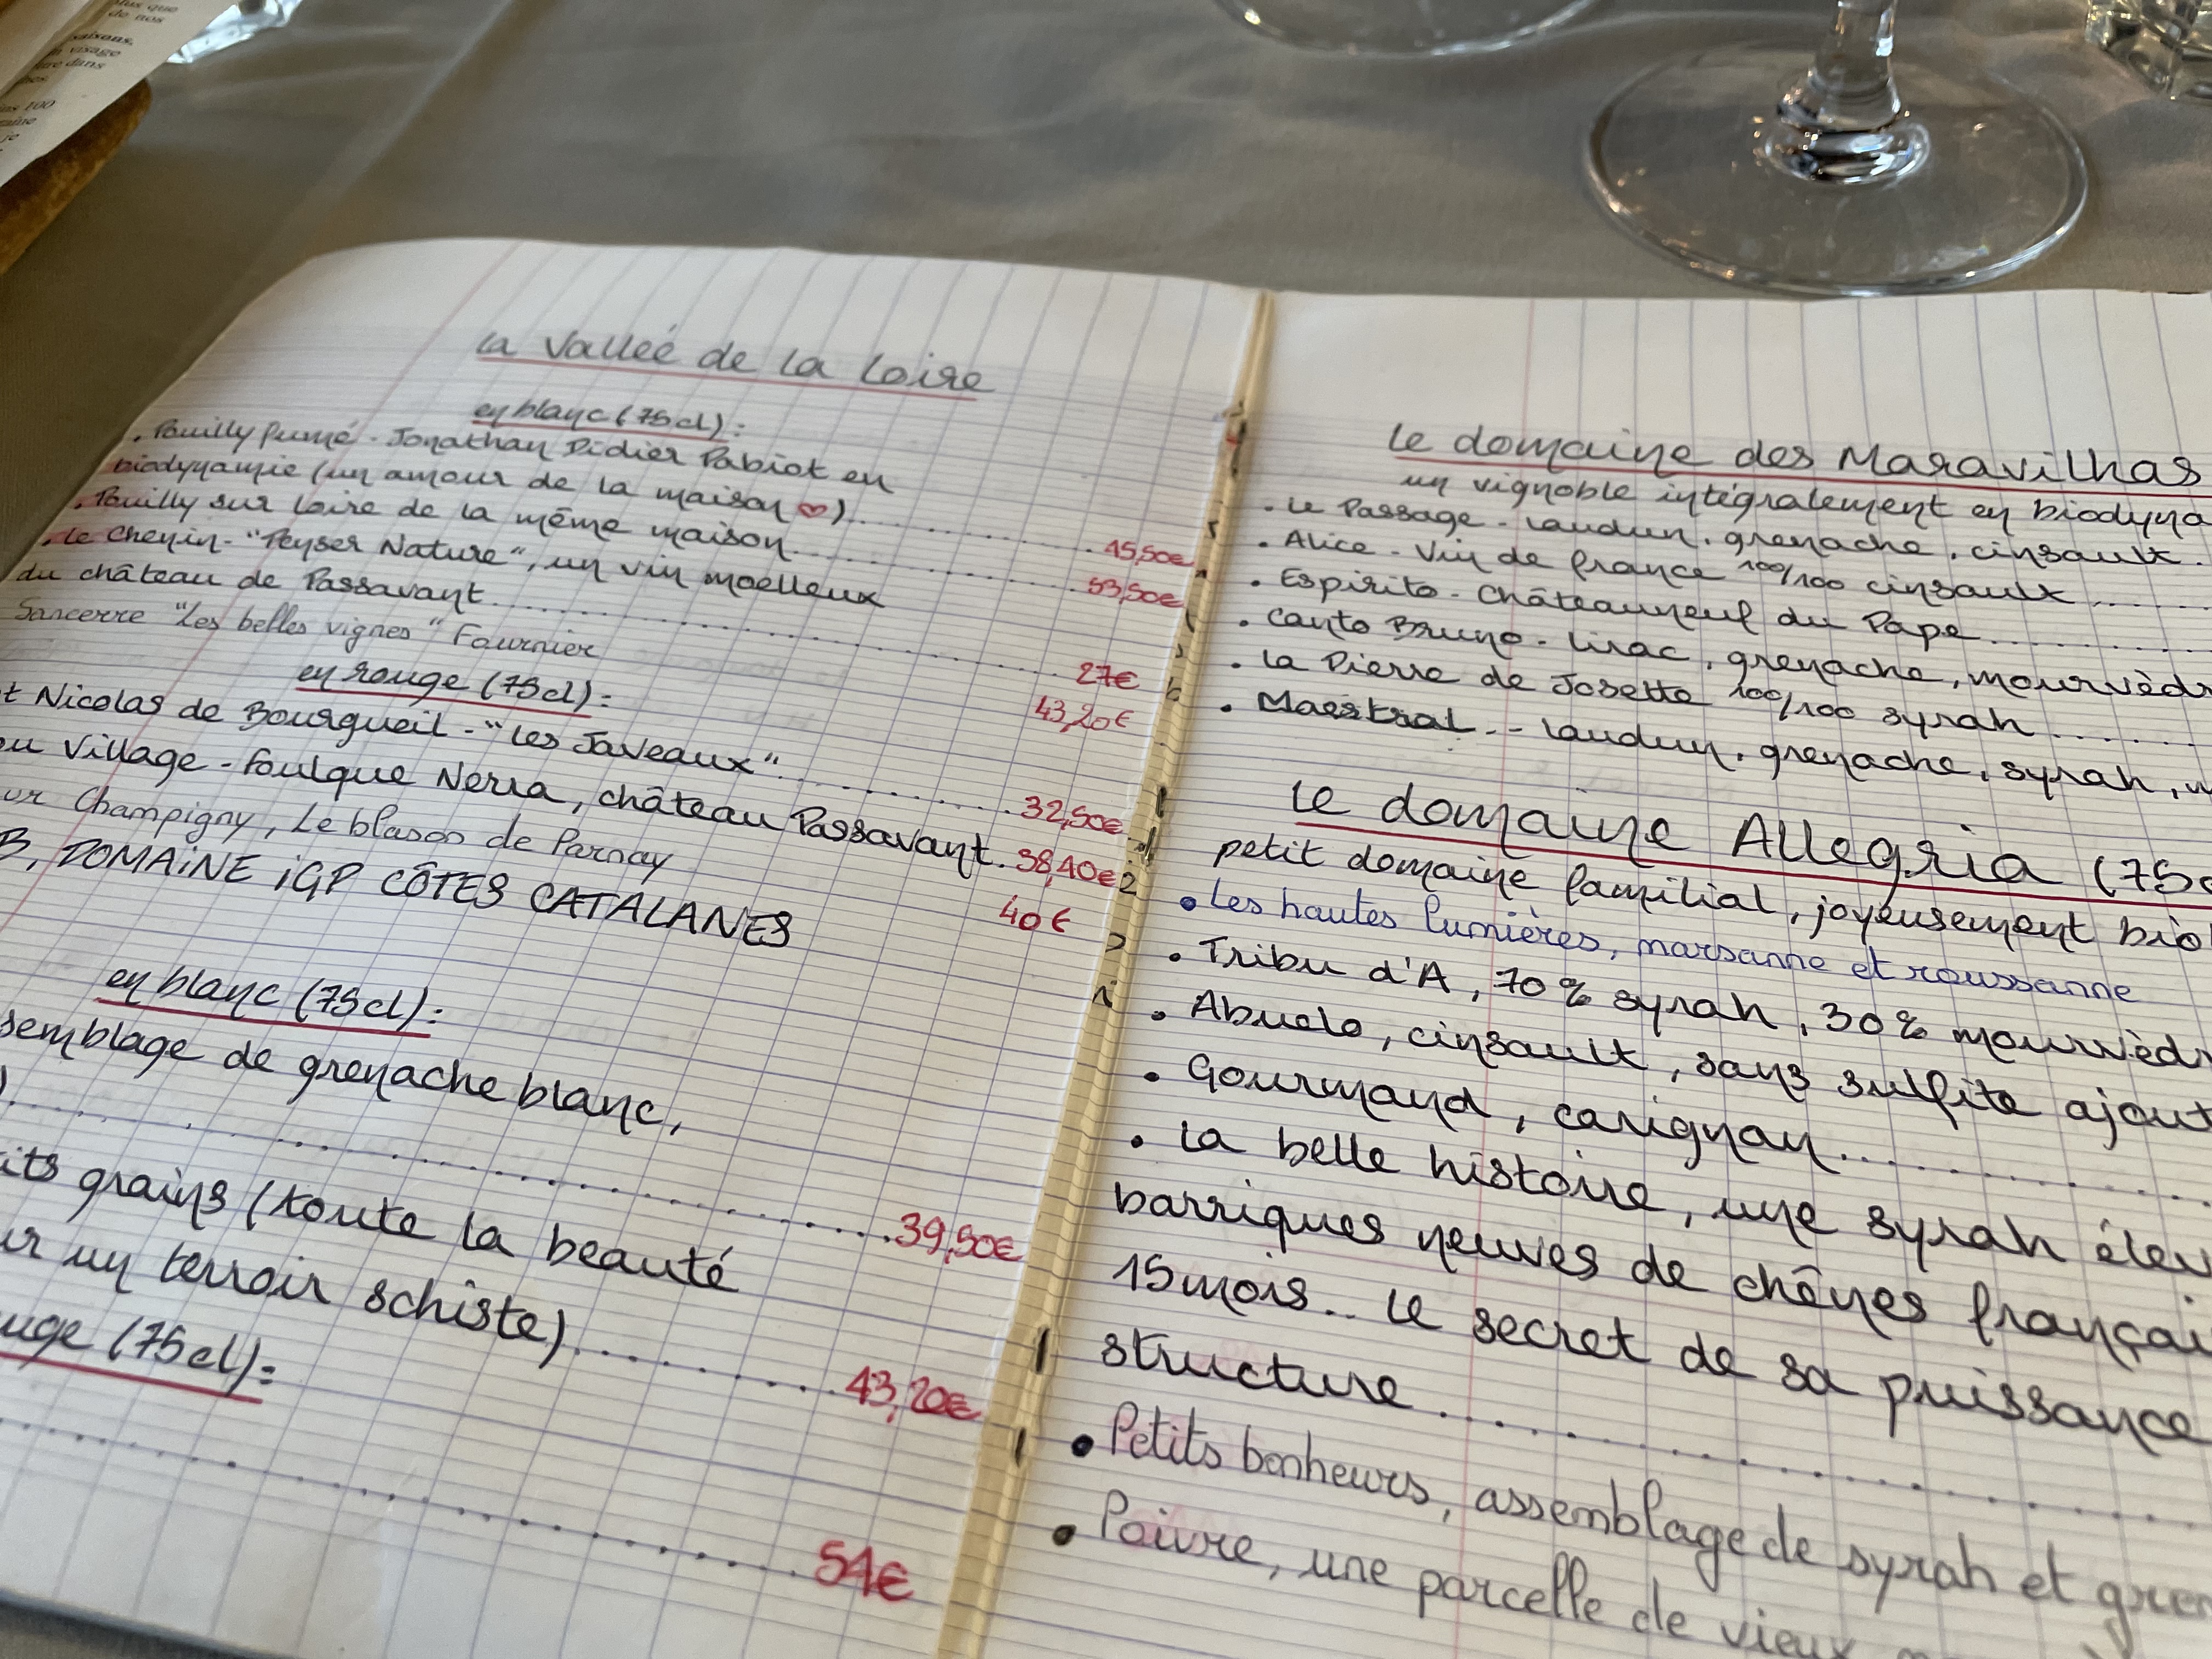 plus que
de nos
saisons,
visage
dans
100
je
la Valleé de la Loire
en blanc (75cl) :
. Pouilly fumé - Jonathan Didier Pabiot en
biodynamie (un amour de la maison ♡)............ 45,50€
. Pouilly sur Loire de la même maison............ 53,50€
. le Chenin - "Peyser Nature", un vin moelleux
du château de Passavant............ 27€
Sancerre "Les belles vignes" Fournier 43,20€
en rouge (75cl) :
t Nicolas de Bourgueil - "Les Javeaux"............ 32,50€
ou Village - Foulque Nerra, château Passavant. 38,40€
ur Champigny, Le blason de Parnay 40€
B, DOMAiNE iGP CÔTES CATALANES
en blanc (75cl) :
semblage de grenache blanc,
)............ 39,50€
its grains (toute la beauté
ur un terroir schiste)............ 43,20€
uge (75cl) :
............ 54€
Le domaine des Maravilhas
un vignoble intégralement en biodyna
. Le Passage - Laudun, grenache, cinsault.
. Alice - Vin de france 100/100 cinsault......
. Espirito - Châteauneuf du Pape......
. Canto Bruno - Lirac, grenache, mourvèdr
. La Pierre de Josette 100/100 syrah......
. Maestral.. - Laudun, grenache, syrah, m
Le domaine Allegria (75c
petit domaine familial, joyeusement bio!
• Les hautes lumières, marsanne et roussanne
. Tribu d'A, 70% syrah, 30% mourvèdr
. Abuelo, cinsault, sans sulfite ajout
. Gourmand, carignan............
. La belle histoire, une syrah élev
barriques neuves de chênes françai
15 mois.. Le secret de sa puissance
structure............
• Petits bonheurs, assemblage de syrah et gren
• Poivre, une parcelle de vieux